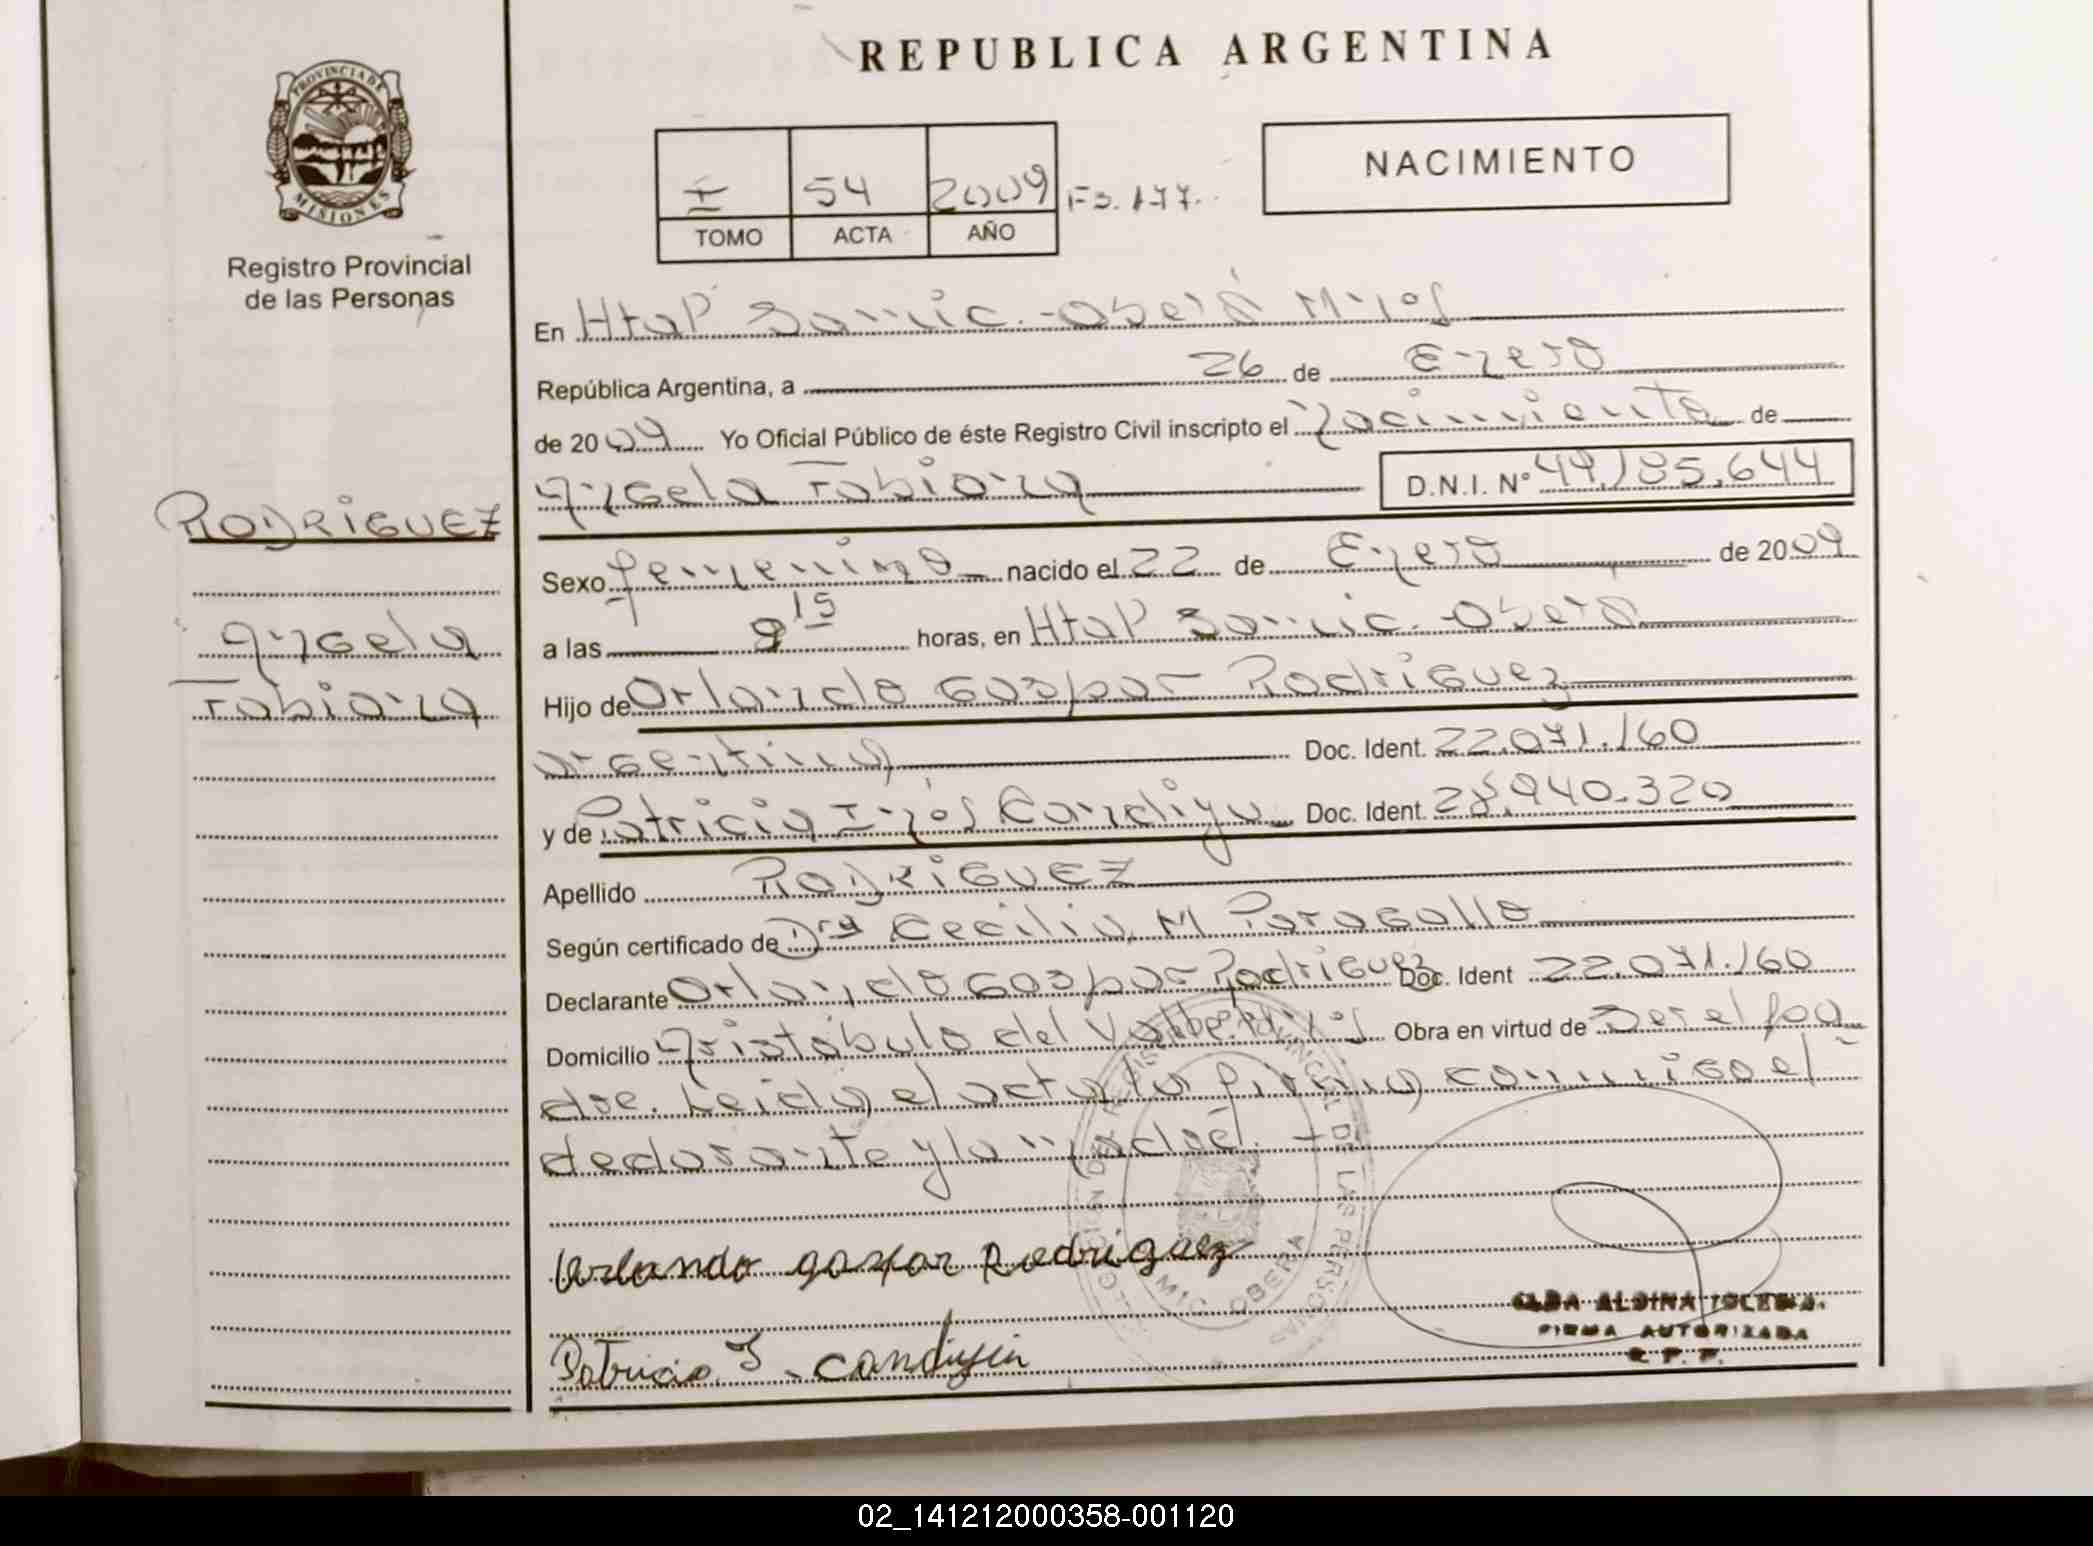 REPUBLICA ARGENTINA
PROVINCIA DE
MISIONES
Registro Provincial
de las Personas
I 54 2009 Fs. 177.
TOMO ACTA AÑO
NACIMIENTO
En Htal Samic.-Oberá Mnes
República Argentina, a 26 de Enero
de 2009 Yo Oficial Público de éste Registro Civil inscripto el Nacimiento de
Angela Fabiana D.N.I. Nº 49.185.644
RODRIGUEZ
Sexo femenino nacido el 22 de Enero de 2009
Angela
a las 8 15 horas, en Htal Samic.-Oberá
Fabiana
Hijo de Orlando Gaspar Rodriguez
argentino, Doc. Ident. 22.071.160
y de Patricia Inés Candiyu Doc. Ident. 28.940.320
Apellido RODRIGUEZ
Según certificado de Dra Cecilia M Paragallo
Declarante Orlando Gaspar Rodriguez Doc. Ident 22.071.160
Domicilio Aristóbulo del Valle. Mnes Obra en virtud de Ser el pa
dre. Leida el acta, la firma conmigo el
declarante y la madre.
Orlando gaspar Rodriguez
Patricia I. Candiyu
OBERA
FIRMA AUTORIZADA
R. P. P.
02_141212000358-001120